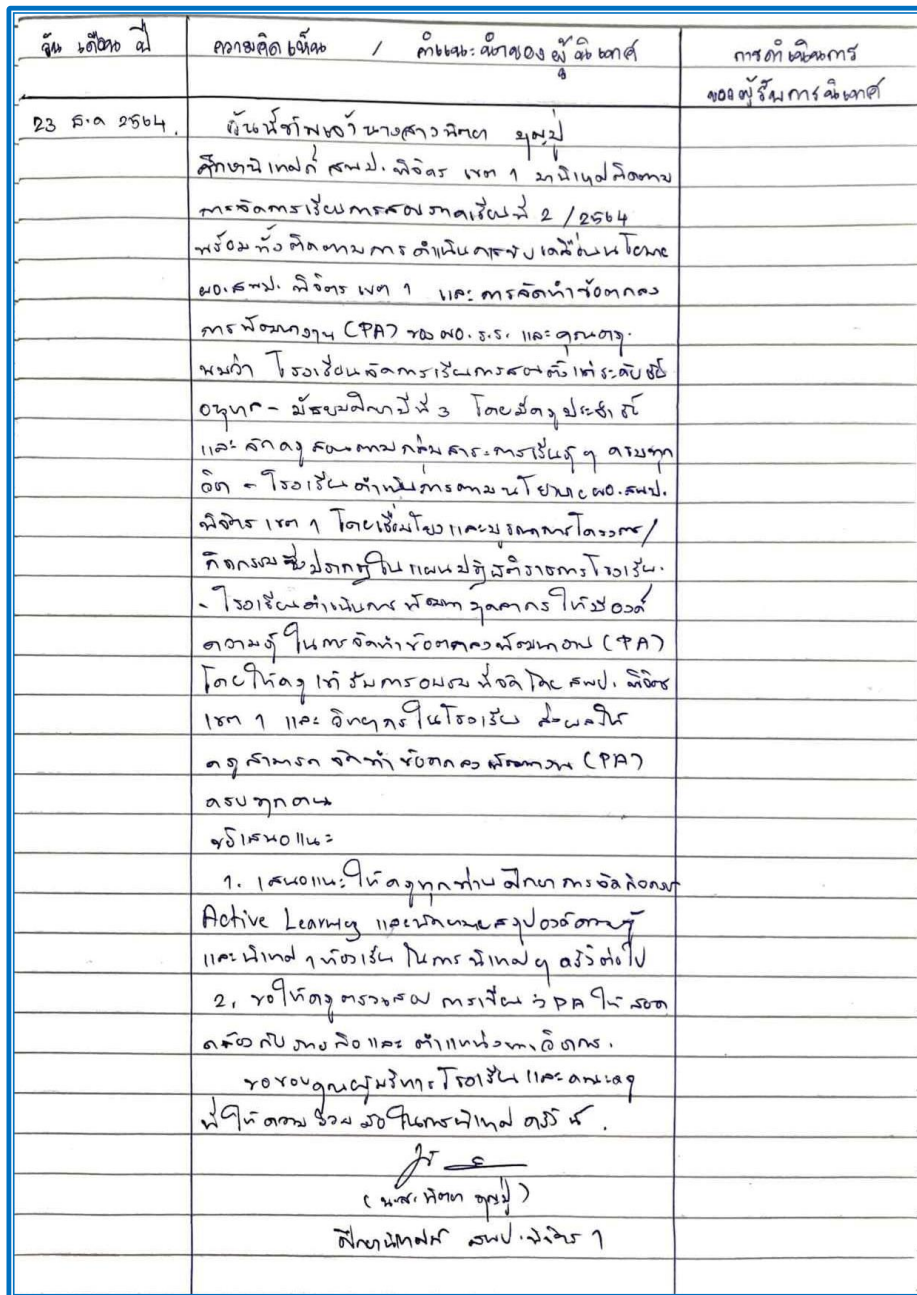 วัน เดือน ปี
ความคิดเห็น / คำแนะนำของผู้นิเทศ
การดำเนินการ
ของผู้รับการนิเทศ
23 ธ.ค 2564.
วันนี้ข้าพเจ้า นางสาวนิตยา บุญปู่
ศึกษานิเทศก์ สพป. พิจิตร เขต 1 มานิเทศติดตาม
การจัดการเรียนการสอนภาคเรียนที่ 2 /2564
พร้อมทั้งติดตามการดำเนินการขับเคลื่อนนโยบาย
ผอ.สพป. พิจิตร เขต 1 และการจัดทำข้อตกลง
การพัฒนางาน (PA) ของ ผอ. ร.ร. และคุณครู.
พบว่า โรงเรียนจัดการเรียนการสอนตั้งแต่ระดับชั้น
อนุบาล - มัธยมศึกษาปีที่ 3 โดยมีครูประจำชั้น
และจัดครูสอนตามกลุ่มสาระการเรียนรู้ๆ ครบทุก
วิชา - โรงเรียนดำเนินการตามนโยบาย ผอ.สพป.
พิจิตร เขต 1 โดยเชื่อมโยงและบูรณาการโครงการ/
กิจกรรมซึ่งปรากฏในแผนปฏิบัติราชการโรงเรียน.
- โรงเรียนดำเนินการพัฒนาบุคลากรให้มีองค์
ความรู้ในการจัดทำข้อตกลงพัฒนางาน (PA)
โดยให้ครูเข้ารับการอบรมที่จัดโดย สพป. พิจิตร
เขต 1 และวิทยากรในโรงเรียน ส่งผลให้
ครูสามารถจัดทำข้อตกลงพัฒนางาน (PA)
ครบทุกคน
ข้อเสนอแนะ
1. เสนอแนะให้ครูทุกท่านศึกษาการจัดกิจกรรม
Active Learning และ สรุปองค์ความรู้
และนิเทศๆ ห้องเรียน ในการนิเทศๆ ครั้งต่อไป
2. ขอให้ครูตรวจสอบ การเขียน ว PA ให้สอด
คล้องกับ และ ตำแหน่งทางวิชาการ.
ขอขอบคุณผู้บริหารโรงเรียน และคณะครู
ที่ให้ความร่วมมือในการนิเทศ ครั้งนี้.
( น.ส. นิตยา บุญปู่ )
ศึกษานิเทศก์ สพป. พิจิตร 1